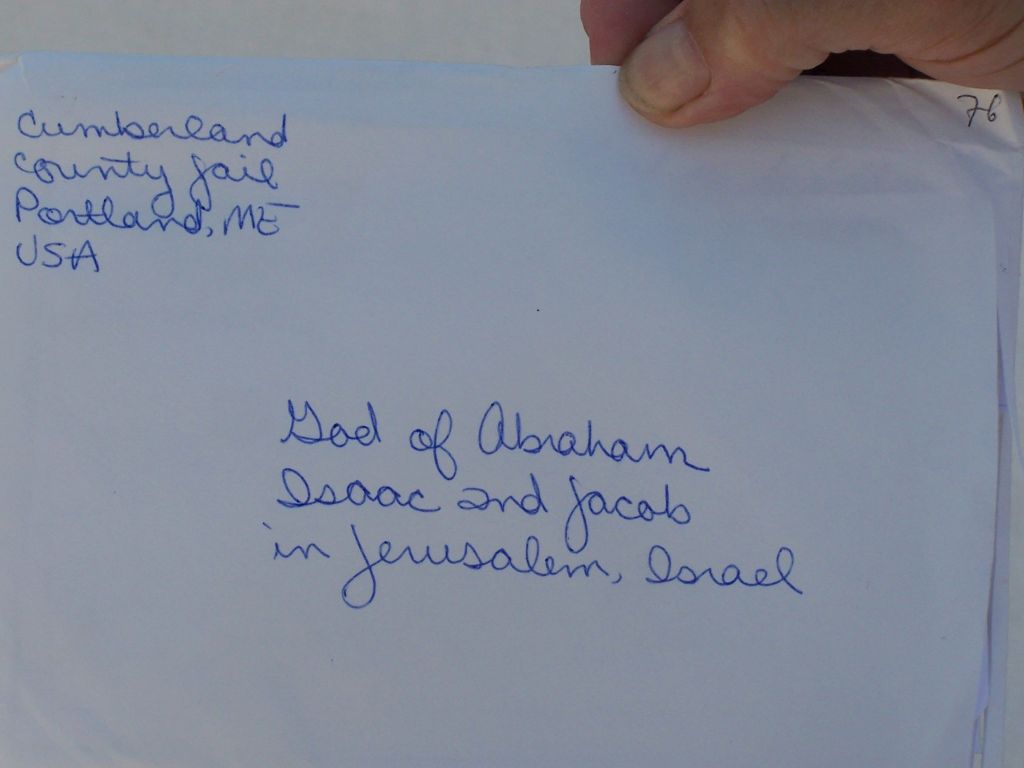 76
Cumberland
County Jail
Portland, ME
USA
God of Abraham
Isaac and Jacob
in Jerusalem, Israel